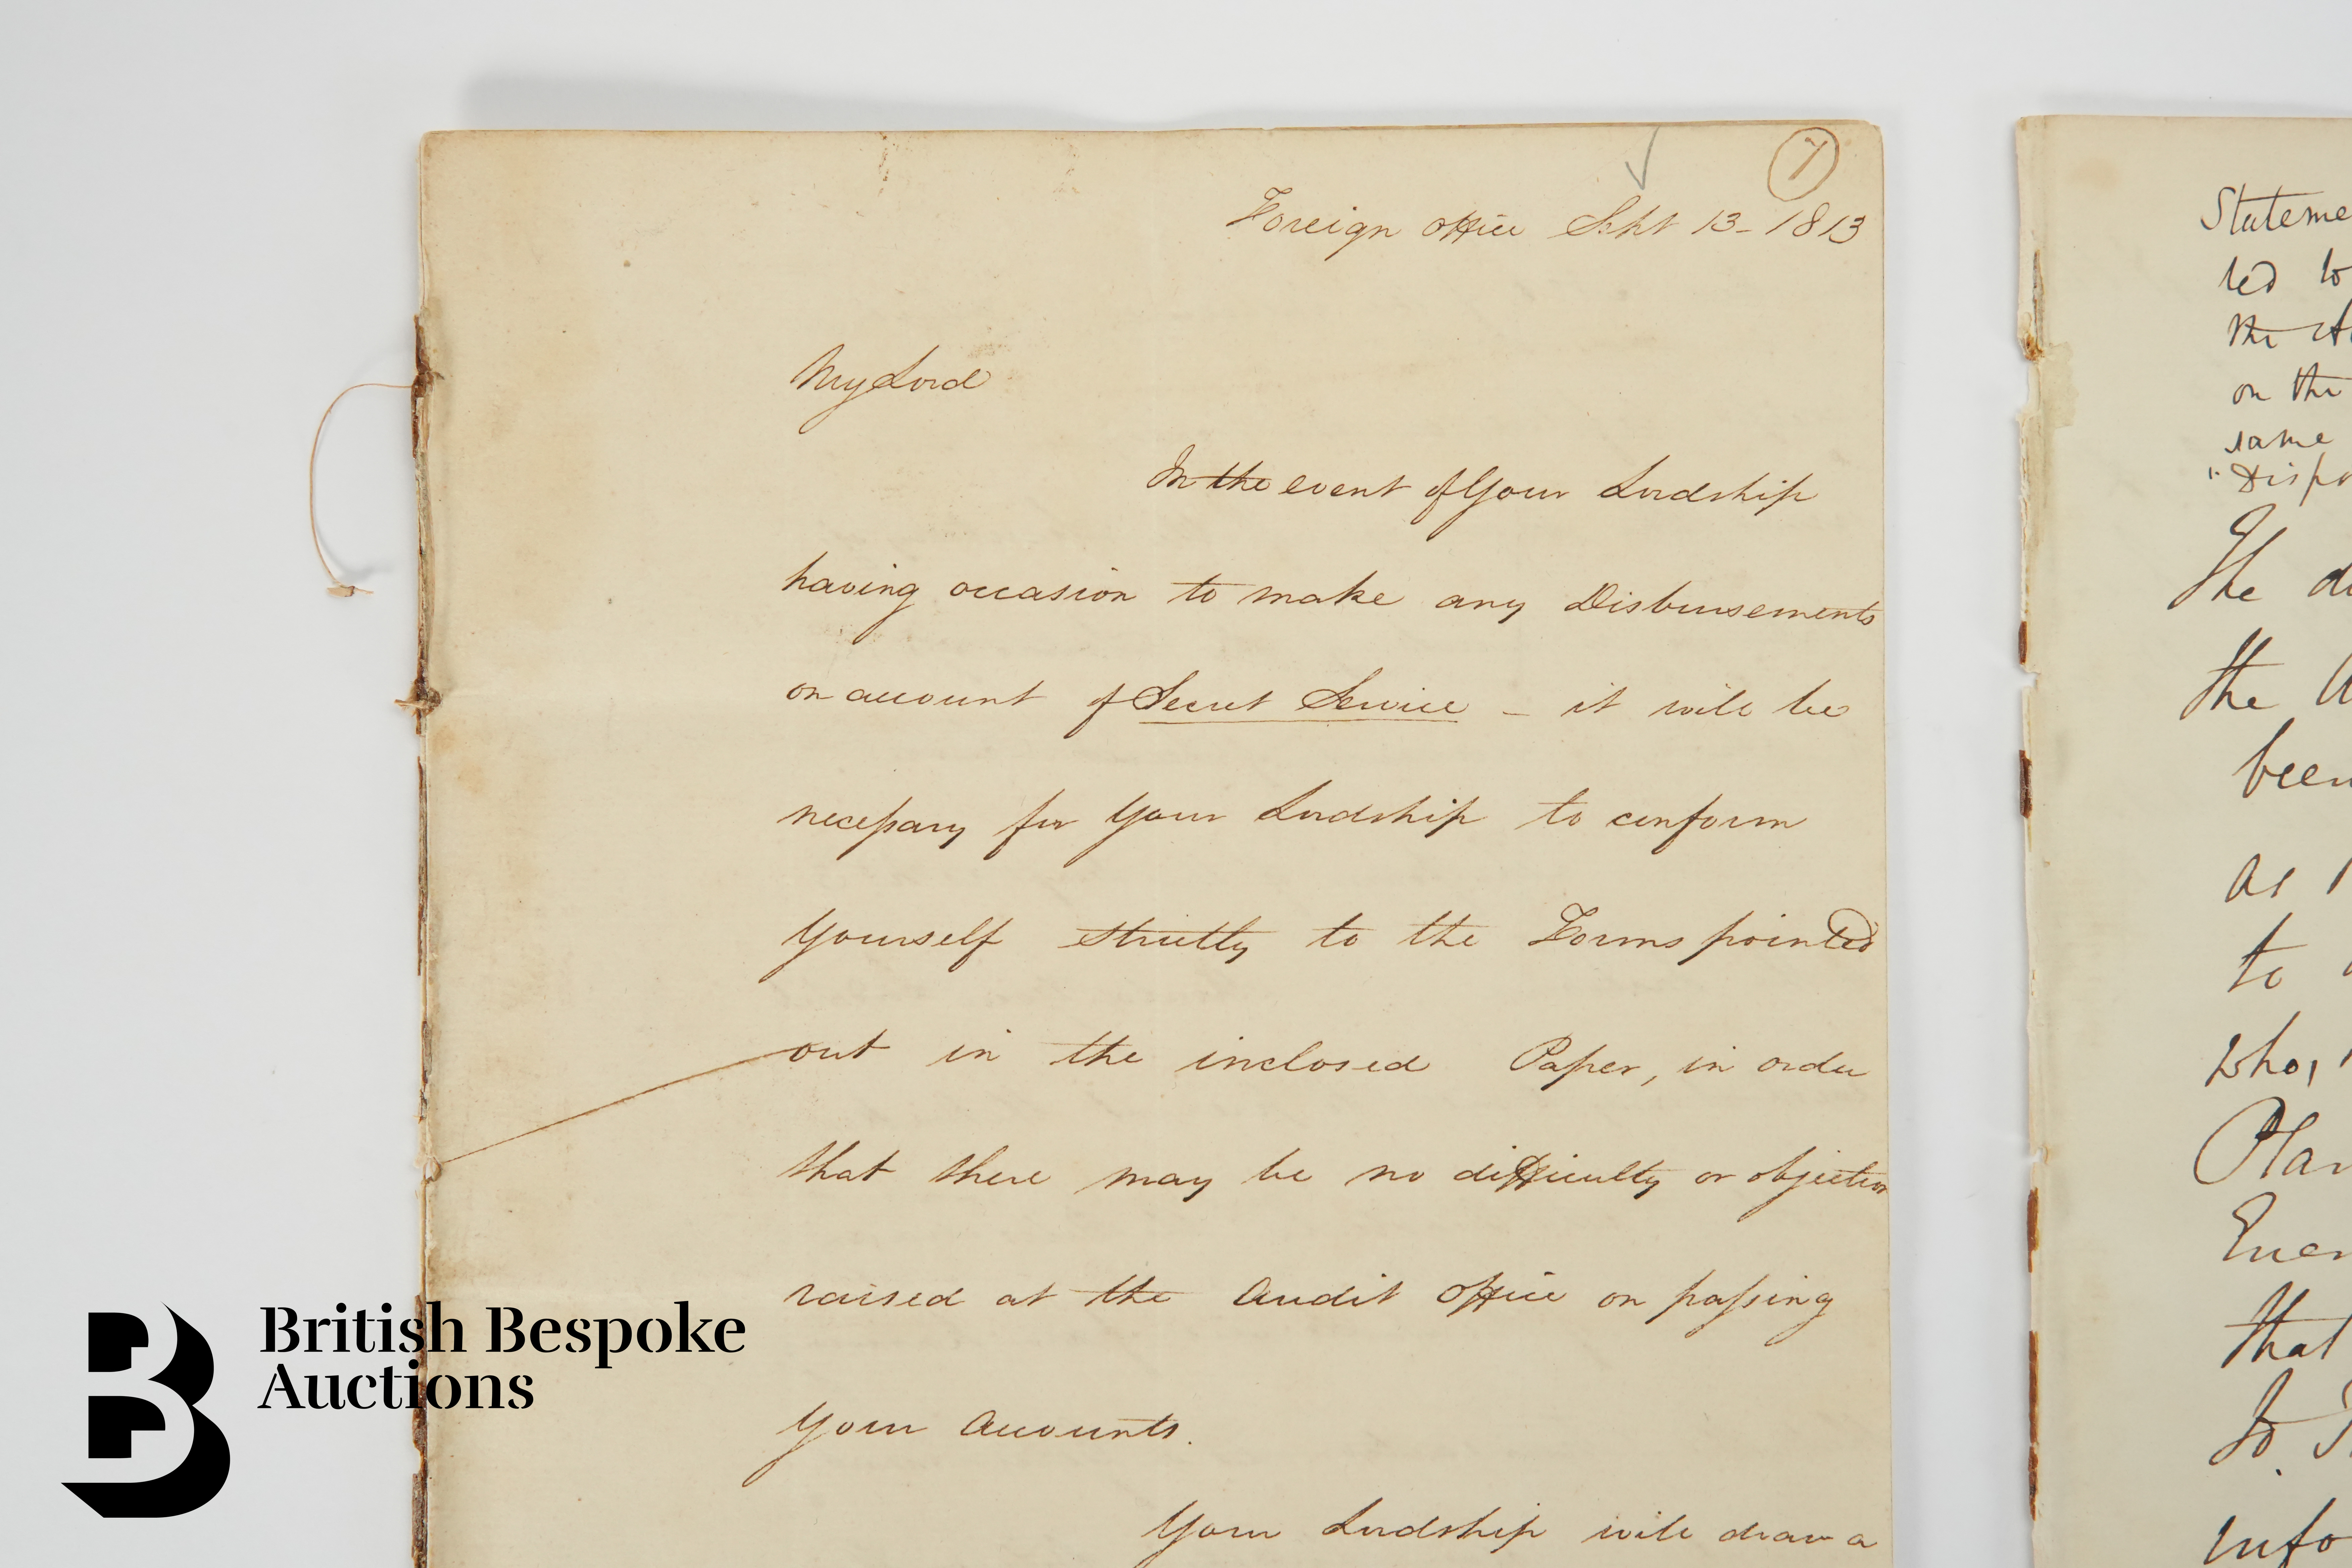 7
Foreign Office Sept 13 - 1813
My Lord
In the event of Your Lordship
having occasion to make any Disbursements
on account of Secret Service - it will be
necessary for Your Lordship to conform
Yourself strictly to the Forms pointed
out in the inclosed Paper, in order
that there may be no difficulty or objection
raised at the Audit Office on passing
Your Accounts.
Your Lordship will draw a
Stateme
ted to
the
on the
same
"Dispo
The
the
been
as
to
who,
Plan
Enem
that
to
info
British Bespoke
Auctions